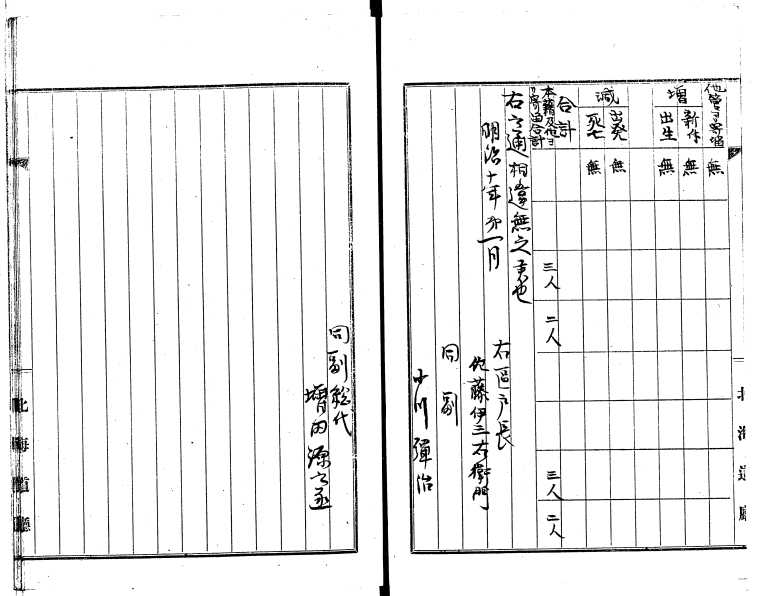 他管ヨリ寄留 無
増 新作 無
出生 無
減 出発 無
死亡 無
合計 三人 二人 三人 二人
本籍及他ヨリ寄留合計
右之通相違無之者也
明治十年第一月
右区戸長
佐藤伊三右衛門
同副
小川彌治
北海道廳
同副総代
増田源之丞
北海道廳